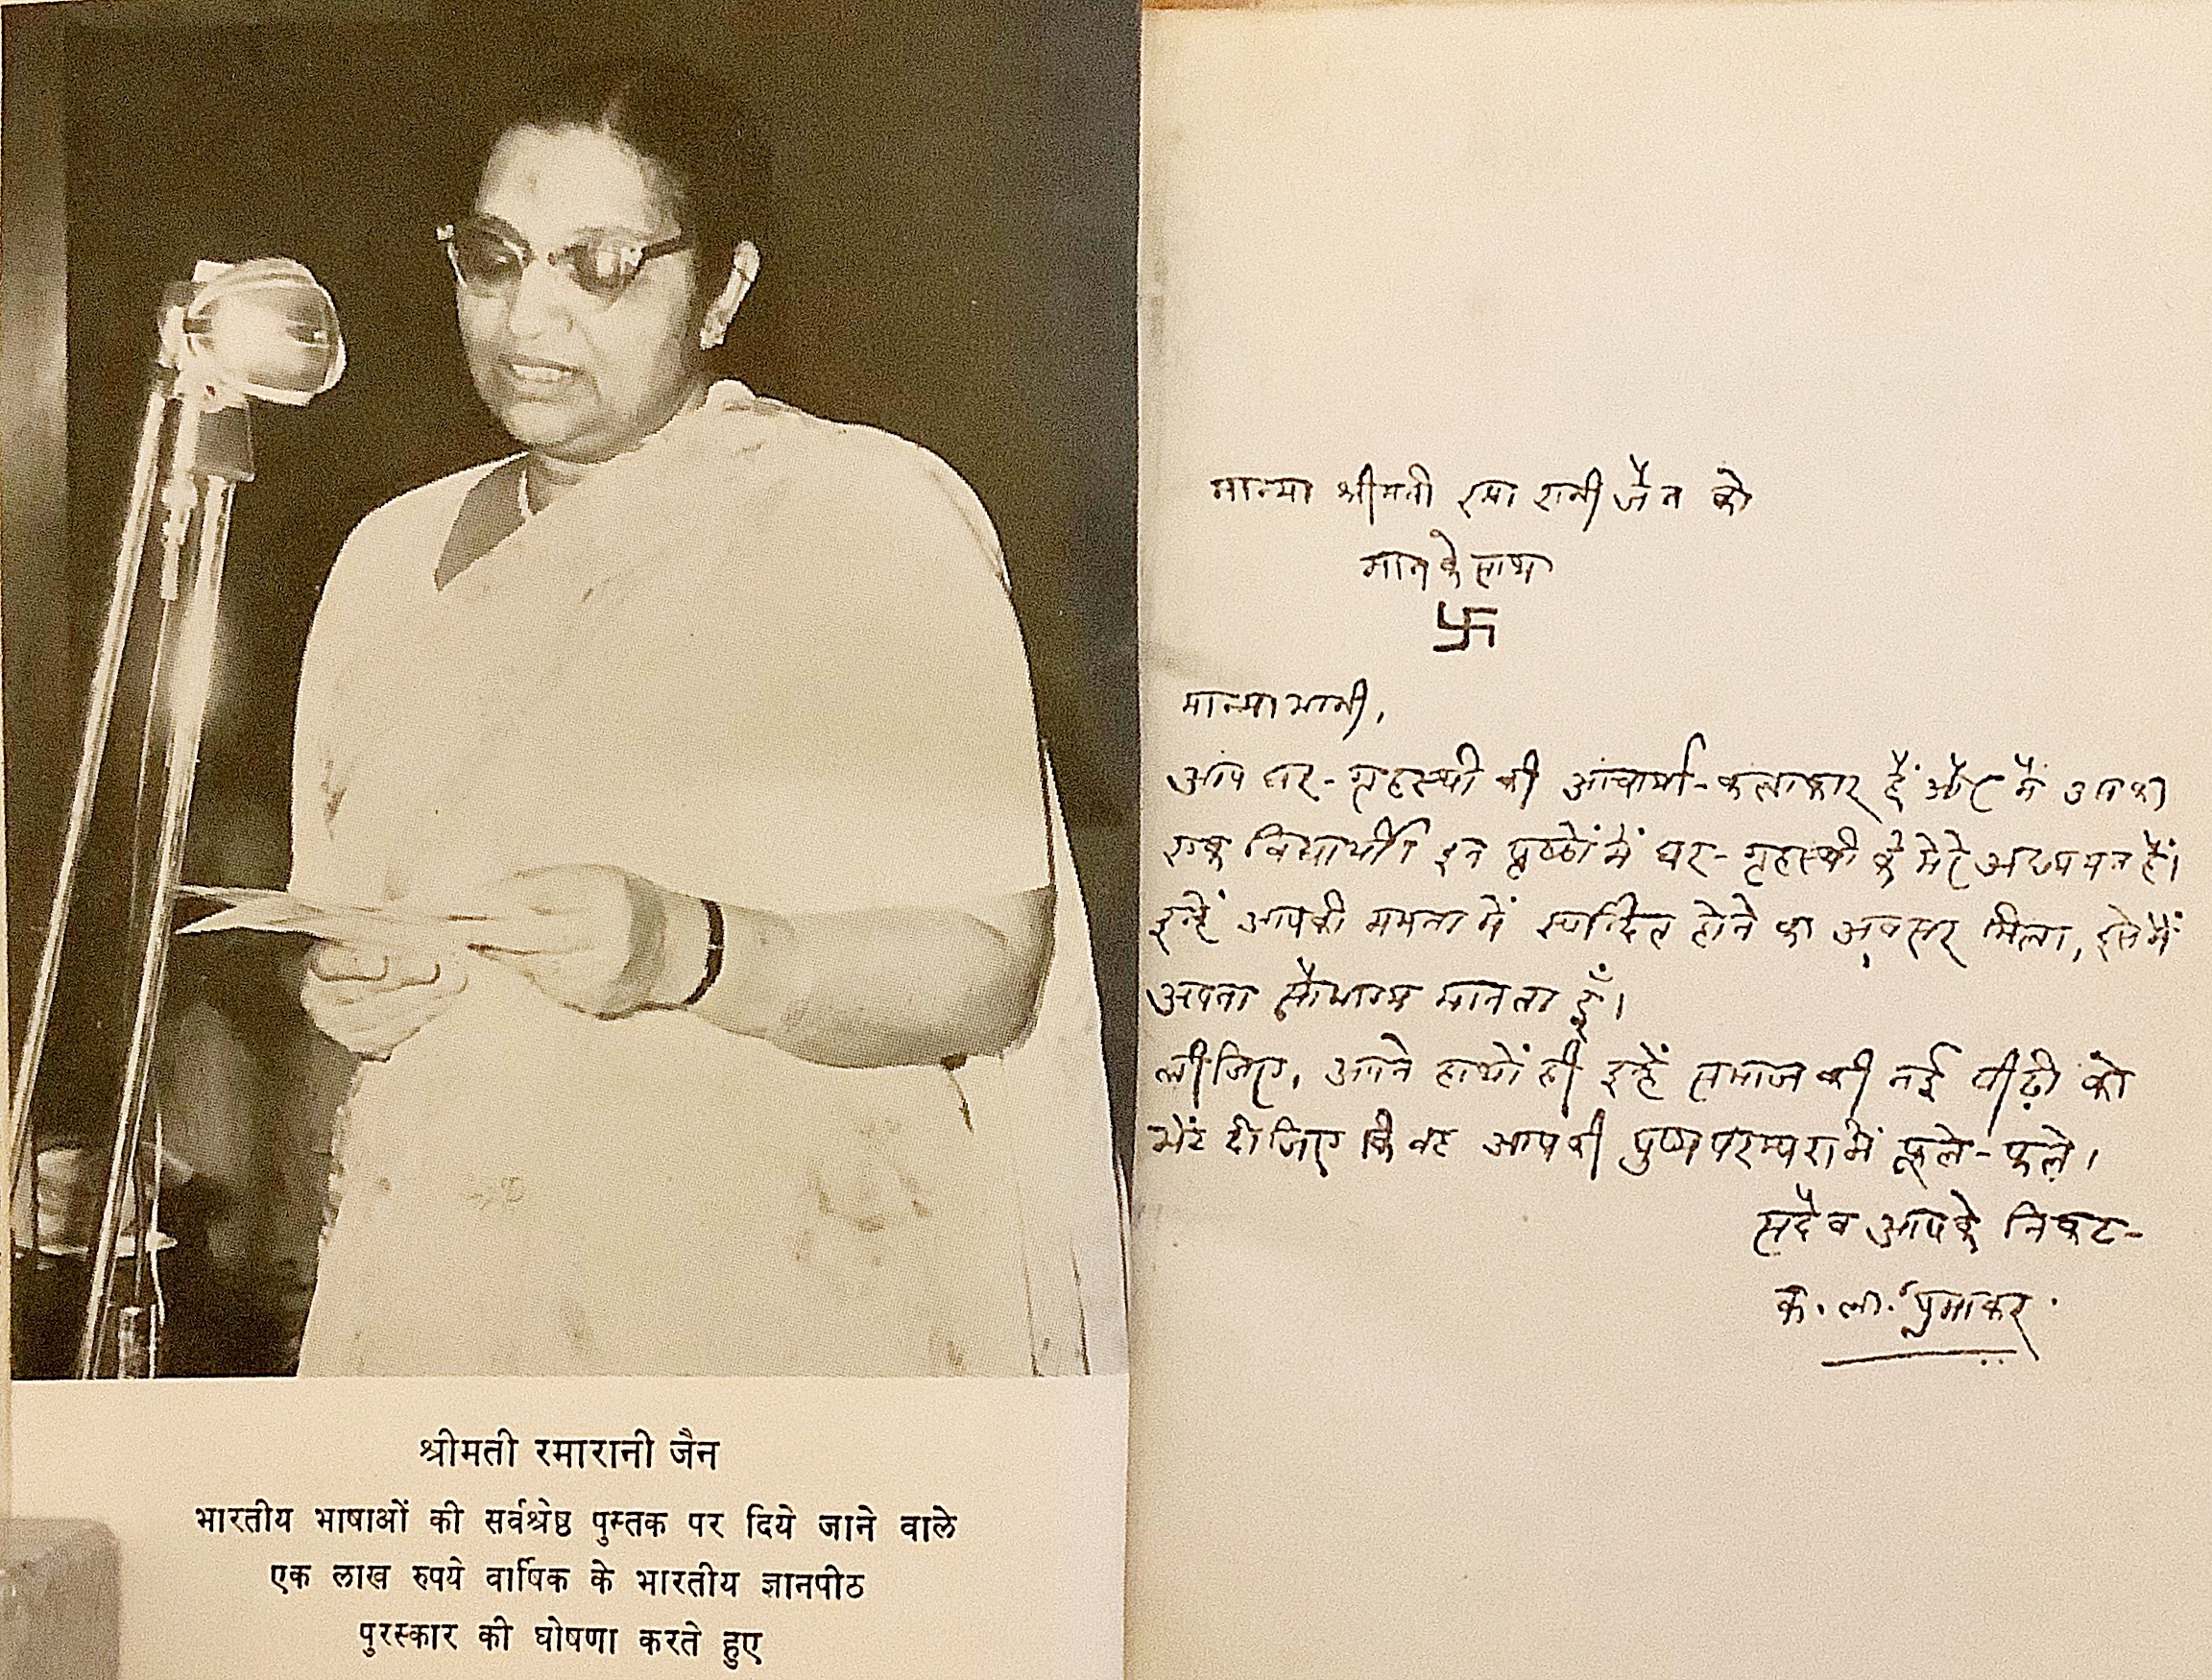 श्रीमती रमारानी जैन
भारतीय भाषाओं की सर्वश्रेष्ठ पुस्तक पर दिये जाने वाले
एक लाख रुपये वार्षिक के भारतीय ज्ञानपीठ
पुरस्कार की घोषणा करते हुए
मान्या श्रीमती रमा रानी जैन को
मान के साथ
मान्या भाभी,
आप घर-गृहस्थी की आचार्या-कलाकार हैं और मैं उसका
एक विद्यार्थी। इन पृष्ठों में घर-गृहस्थी के मेरे अध्ययन हैं।
इन्हें आपकी ममता में स्पन्दित होने का अवसर मिला, इसे मैं
अपना सौभाग्य मानता हूँ।
लीजिए, अपने हाथों ही इन्हें समाज की नई पीढ़ी को
भेंट दीजिए कि वह आपकी पुण्य परम्परा में फूले-फले।
सदैव आपके निकट-
क. ला. प्रभाकर.